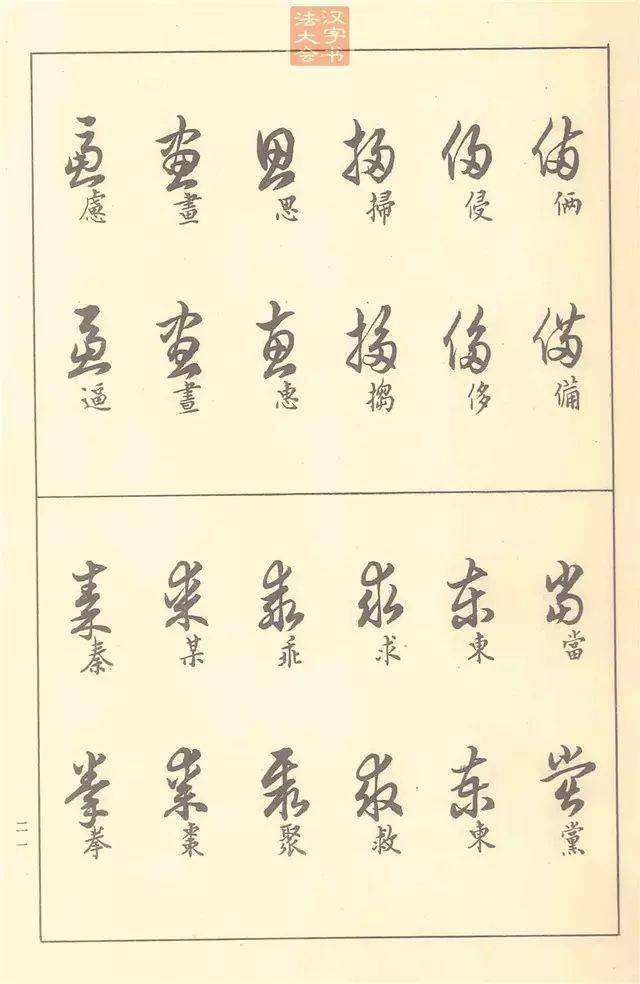 汉字书
法大会
俩
備
侵
侈
掃
搊
思
惠
畫
晝
慮
逼
當
黨
東
東
求
救
乖
聚
某
棗
秦
拳
二一